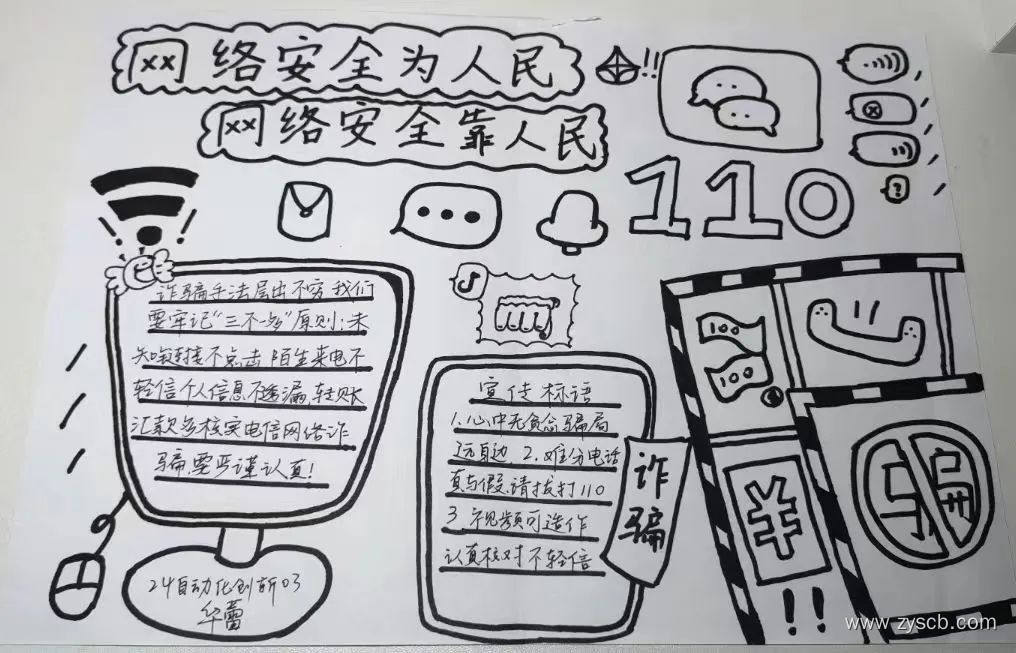 网络安全为人民
网络安全靠人民
110
诈骗手法层出不穷 我们
要牢记"三不一多"原则:未
知链接不点击 陌生来电不
轻信 个人信息不透漏,转账
汇款多核实电信网络诈
骗,要严谨认真!
24自动化创新03
华蕾
宣传标语
1.心中无贪念骗局
远自边 2.难分电话
真与假,请拔打110
3.视频可造作
认真核对不轻信
诈骗
100
100
¥
!!
骗
www.zyscb.com